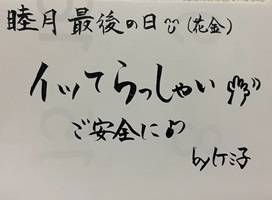 睦月最後の日☺(花金)
イッてらっしゃい
ご安全に♪
byケミ子